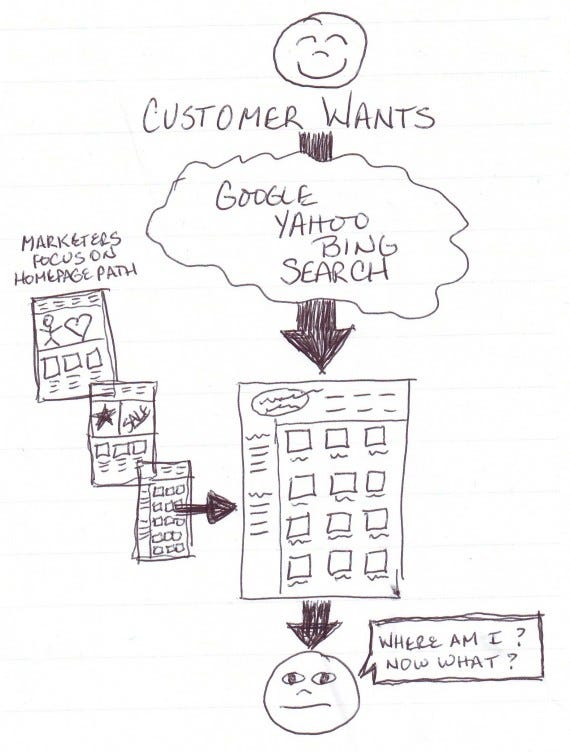 CUSTOMER WANTS
GOOGLE
YAHOO
BING
SEARCH
MARKETERS
FOCUS ON
HOMEPAGE PATH
SALE
WHERE AM I?
NOW WHAT?